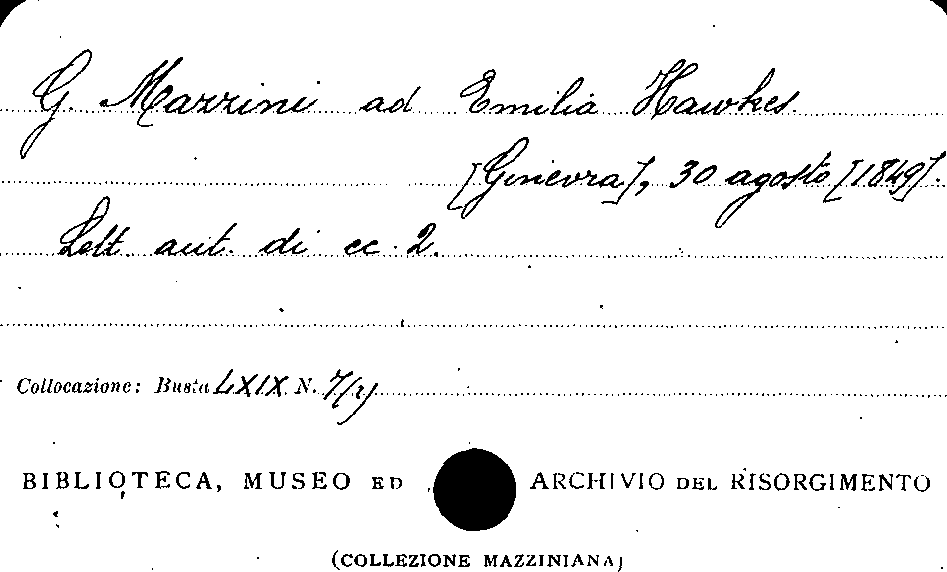 G. Mazzini ad Emilia Hawkes.
[Ginevra], 30 agosto [1849].
Lett. aut. di cc. 2.
Collocazione: Busta LXIX N. 7/(2)
BIBLIOTECA, MUSEO ED ARCHIVIO DEL RISORGIMENTO
(COLLEZIONE MAZZINIANA)